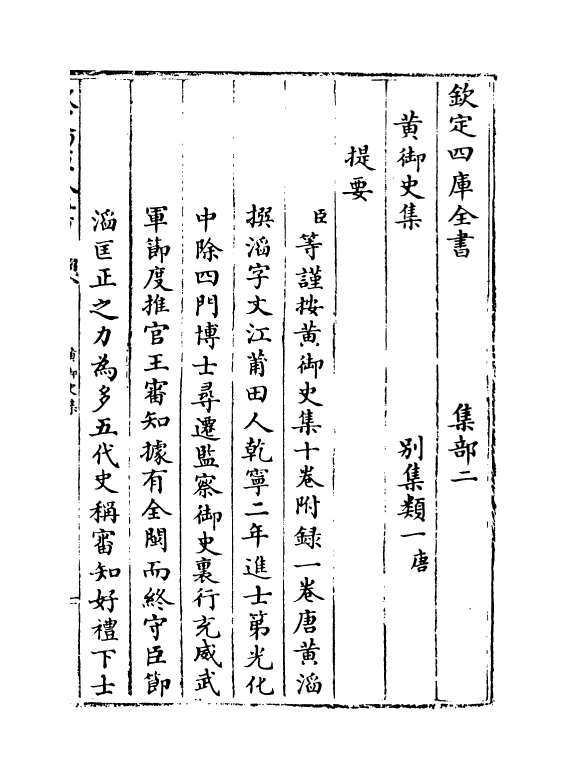 欽定四庫全書　集部二
黄御史集　別集類一唐
提要
臣等謹按黄御史集十卷附録一卷唐黄滔
撰滔字文江莆田人乾寧二年進士第光化
中除四門博士尋遷監察御史裏行充威武
軍節度推官王審知據有全閩而終守臣節
滔匡正之力為多五代史稱審知好禮下士
黄御史集
一